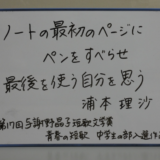 ノートの最初のページに
ペンをすべらせ
最後を使う自分を思う
浦本理沙
第17回与謝野晶子短歌文学賞
青春の短歌 中学生の部入選